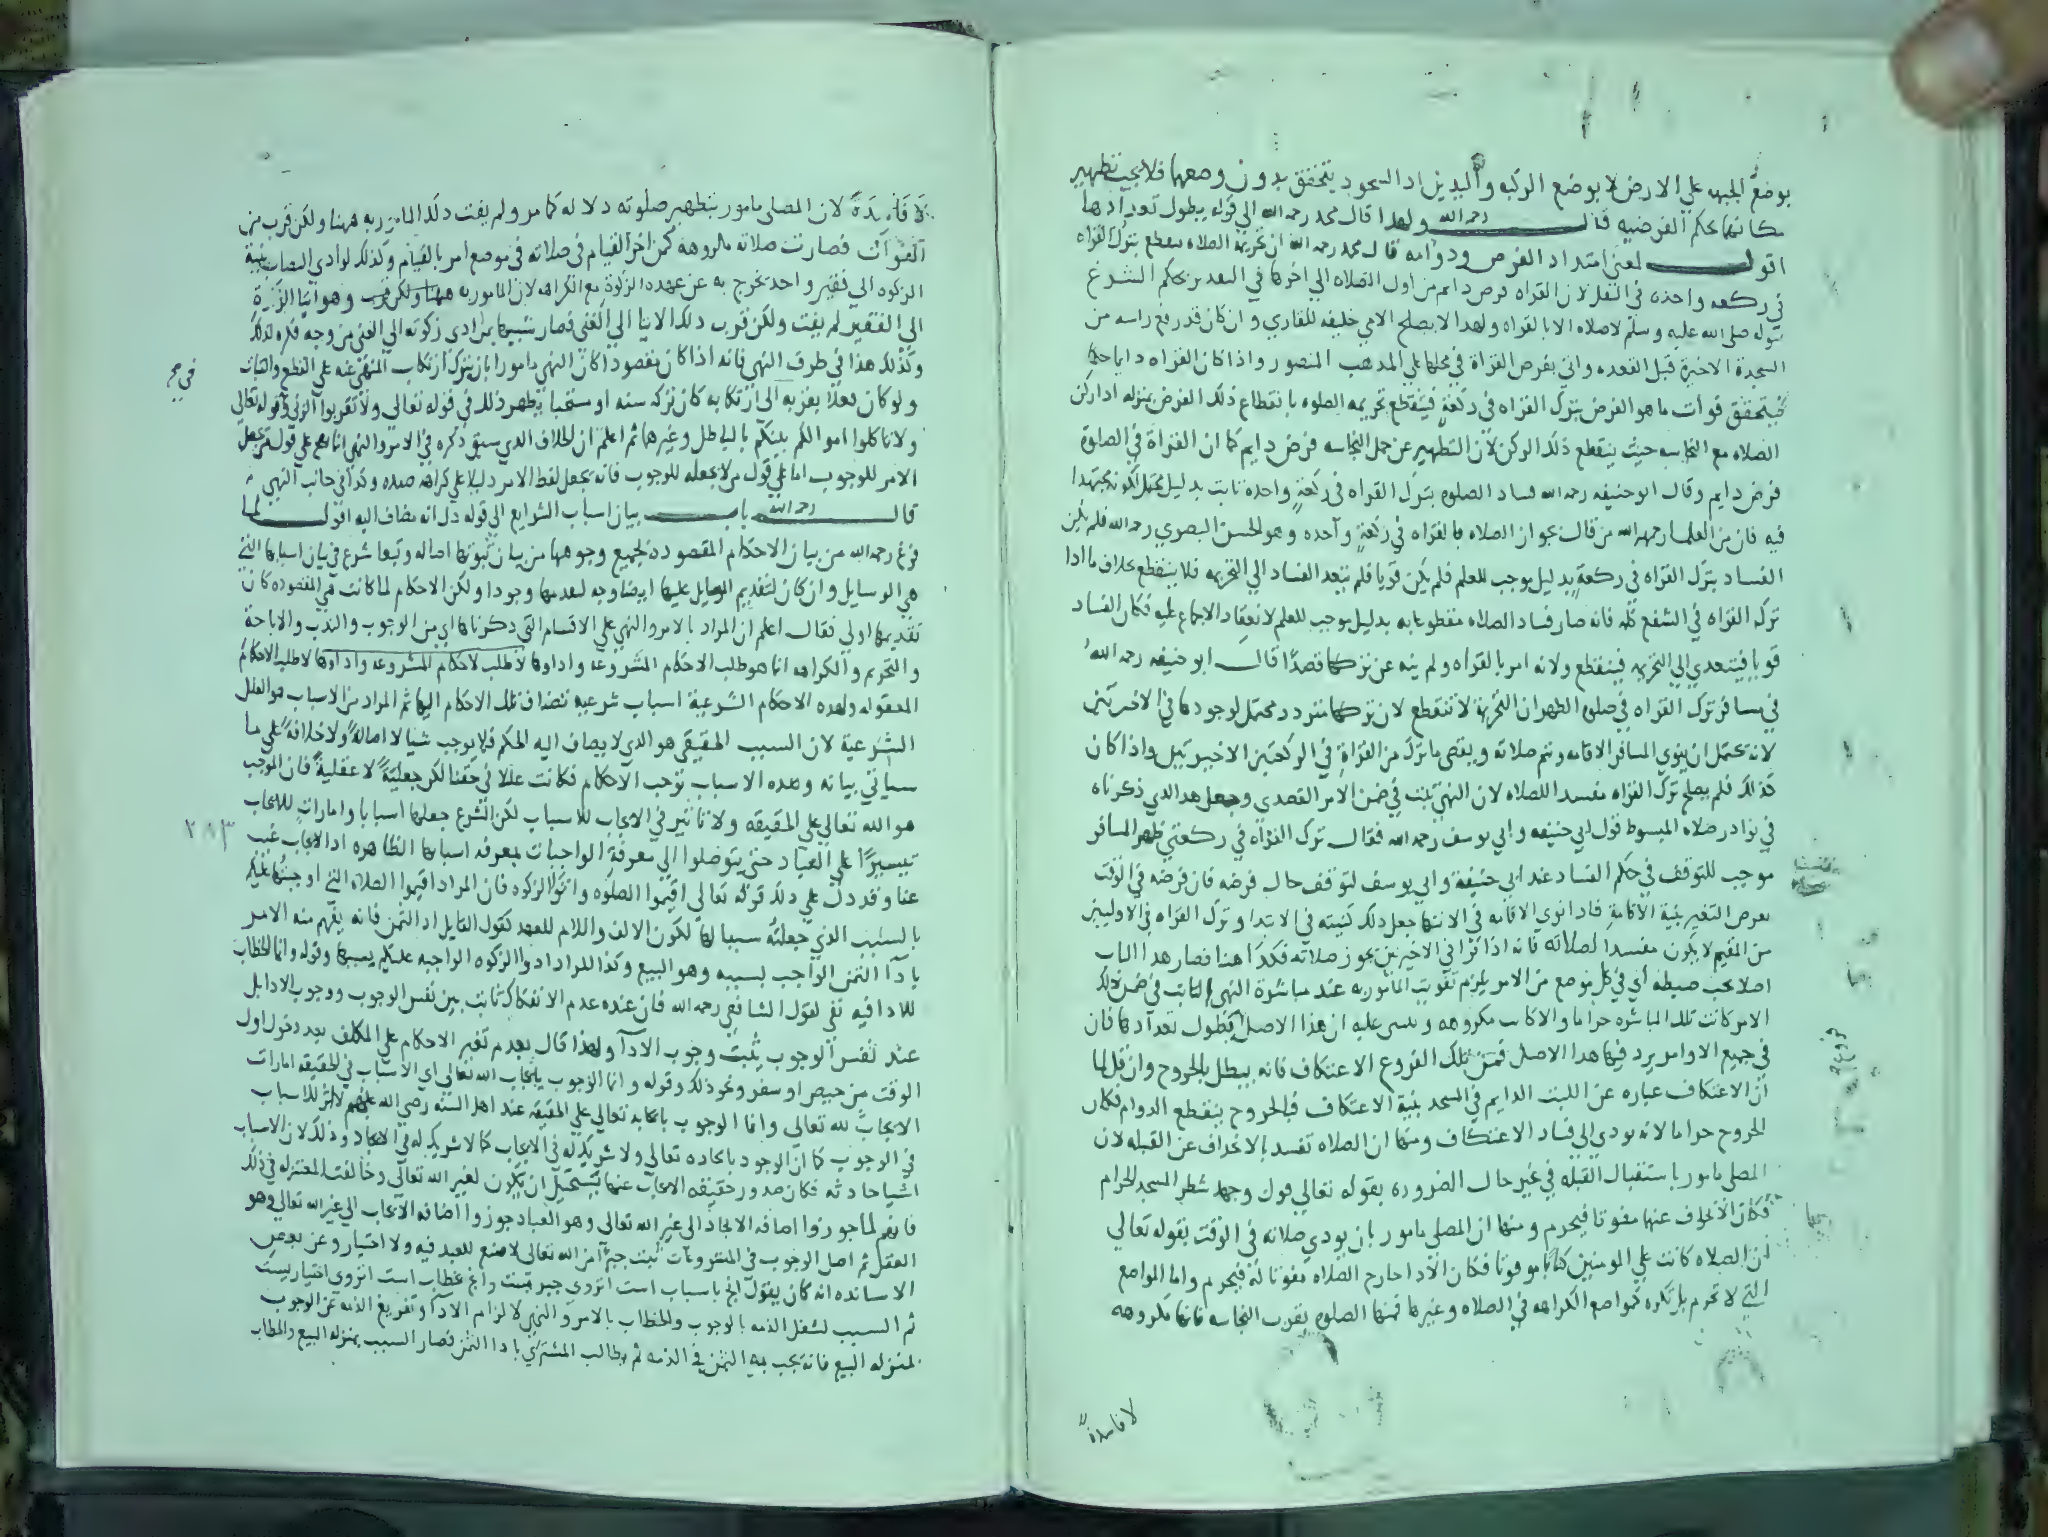 بوضع الجبهه علي الارض لا بوضع الركبه واليدين اذ السجود يتحقق بدون وضعها فلا يجب تطهير
مكانها بحكم الفرضيه قال رحمه الله ولهذا قال محمد رحمه الله الي قوله يطول تعدادها
اقول يعني امتداد الفرض ودوامه قال محمد رحمه الله ان تحريمه الصلاه تنقطع بترك القراه
في ركعه واحده في النفل لان القراه فرض دايم من اول الصلاه الي اخرها في التقدير بحكم الشرع
قوله صلى الله عليه وسلم لا صلاه الا بالقراه ولهذا لا يصلح الامي خليفه للقاري وان كان قد رفع راسه من
السجدة الاخيرة قبل القعده واتي بفرض القراة في محلها علي المذهب المنصور واذا كان القراه دايما حكما
فيتحقق فوات ما هو الفرض بترك القراه في ركعة فينقطع تحريمه الصلوه بانقطاع ذلك الفرض بمنزله اداركن
الصلاه مع النجاسه حيث ينقطع ذلك الركن لان التطهير عن حمل النجاسه فرض دايم كما ان القراة في الصلوة
فرض دايم وقال ابو حنيفه رحمه الله فساد الصلوه بترك القراه في ركعة واحده ثابت بدليل محتمل لكونه مجتهدا
فيه فان من العلما رحمهم الله من قال بجواز الصلاه بالقراه في ركعة واحده وهو الحسن البصري رحمه الله فلم يكن
الفساد بترك القراه في ركعة بدليل موجب للعلم فلم يكن قويا فلم يتعد الفساد الي التحريمه فلا ينقطع بخلاف ما اذا
ترك القراه في الشفع كله فانه صار فساد الصلاه مقطوعا به بدليل موجب للعلم لانعقاد الاجماع عليه فكان الفساد
قويا فيتعدي الي التحريمه فينقطع ولانه امر بالقراه ولم ينه عن تركها قصدًا قال ابو حنيفه رحمه الله
في مسافر ترك القراه في صلوه الظهر ان التحريمة لا تنقطع لان تركها متردد محتمل لوجودها في الاخرتين
لانه يحتمل ان ينوي المسافر الاقامه ويتم صلاته ويقضي ما ترك من القراة في الركعتين الاخيرتين واذا كان
كذلك فلم يصلح ترك القراه مفسدا للصلاه لان النهي ثبت في ضمن الامر القصدي وجعل هذا الذي ذكرناه
في نوادر صلاه المبسوط قول ابي حنيفه وابي يوسف رحمه الله فقال ترك القراه في ركعتي ظهر المسافر
موجب للتوقف في حكم الفساد عند ابي حنيفة وابي يوسف لتوقف حال فرضه فان فرضه في الوقت
بعرض التغير بنية الاقامة فاذا نوي الاقامه في الانتها جعل ذلك كنيته في الابتدا وترك القراه في الاوليين
من المقيم لا يكون مفسدا لصلاته فانه اذا قرا في الاخرين يجوز صلاته فكذا هنا فصار هذا الباب
اصلا يجب ضبطه أي في كل موضع من الامر يلزم تفويت المامور به عند مباشرة النهي الثابت في ضمن ذلك
الامر كانت تلك المباشره حراما والا كانت مكروهه ويبتني عليه ان هذا الاصل يطول تعدادها فان
في جميع الاوامر يرد فيها هذا الاصل فمن تلك الفروع الاعتكاف فانه يبطل بالخروج وان قل لما
ان الاعتكاف عباره عن اللبث الدايم في المسجد بنية الاعتكاف فبالخروج ينقطع الدوام فكان
الخروج حراما لانه يودي الي فساد الاعتكاف ومنها ان الصلاه تفسد بالانحراف عن القبله لان
المصلي مامور باستقبال القبله في غير حال الضروره بقوله تعالي فول وجهك شطر المسجد الحرام
فكان الانحراف عنها مفوتا فيحرم ومنها ان المصلي مامور بان يودي صلاته في الوقت بقوله تعالي
ان الصلاه كانت علي المومنين كتابا موقوتا فكان الادا خارج الصلاه مفوتا له فيحرم واما المواضع
التي لا تحرم بل تكره كمواضع الكراهه في الصلاه وغيرها فمنها الصلوه بقرب النجاسه فانها مكروهه
لا فاسدة
لا فاسدة لان المصلي مامور بتطهير صلوته دلاله كما مر ولم يفت ذلك المامور به ههنا ولكن قرب من
الفوات فصارت صلاته مكروهه كمن اخر القيام في صلاته في موضع امر بالقيام وكذلك لو ادي النصاب بنية
الزكوه الي فقير واحد يخرج به عن عهده الزكوة مع الكراهه لان المامور به ههنا ولكن قرب وهو ايتا الزكوة
الي الفقير لم يفت ولكن قرب ذلك الايتا الي الغني فصار شبيها بمن ادي زكوته الي الغني من وجه فكره لذلك
وكذلك هذا في طرف النهي فانه اذا كان مقصودا كان النهي مامورا بان يترك ارتكاب المنهي عنه علي القطع والثبات
في مر
ولو كان فعلا يقربه الي ارتكابه كان تركه سنه او مستحبا يظهر ذلك في قوله تعالي ولا تقربوا الزنى وقوله تعالى
ولا تاكلوا اموالكم بينكم بالباطل وغيرهما ثم اعلم ان الخلاف الذي سبق ذكره في الامر والنهي انما يصح علي قول من يجعل
الامر للوجوب اما علي قول من لا يجعله للوجوب فانه يجعل لفظ الامر دليلا علي كراهه ضده وكذا في جانب النهي
قال رحمه الله باب بيان اسباب الشرايع الي قوله دل انه مضاف اليه اقول لما
فرغ رحمه الله من بيان الاحكام المقصوده بجميع وجوهها من بيان ثبوتها اصاله وتبعا شرع في بيان اسبابها التي
هي الوسايل وان كان لتقديم الوسايل عليها ايضا وجه لتقدمها وجودا ولكن الاحكام لما كانت هي المقصوده كان
تقديمها اولي فقال اعلم ان المراد بالامر والنهي علي الاقسام التي ذكرناها اي من الوجوب والندب والاباحة
والتحريم والكراهه انما هو طلب الاحكام المشروعه واداوها لا طلب لاحكام المشروعه واداوها لا طلب الاحكام
المعقوله ولهذه الاحكام الشرعية اسباب شرعيه تضاف تلك الاحكام اليها ثم المراد من الاسباب هو العلل
الشرعية لان السبب الحقيقي هو الذي لا يضاف اليه الحكم فلا يوجب شيا لا اصالة ولا خلافة علي ما
سياتي بيانه وهذه الاسباب توجب الاحكام فكانت عللا في حقنا لكن جعلية لا عقلية فان الموجب
هو الله تعالي علي الحقيقه ولا تاثير في الايجاب للاسباب لكن الشرع جعلها اسبابا وامارات للايجاب
٢٨٣
تيسيرا علي العباد حتي يتوصلوا الي معرفة الواجبات بمعرفه اسبابها الظاهره اذ الايجاب غيب
عنا وقد دل علي ذلك قوله تعالى اقيموا الصلوه واتوا الزكوه فان المراد اقيموا الصلاه التي اوجبتها عليكم
بالسبب الذي جعلته سببا لها لكون الالف واللام للعهد كقول القايل اد الثمن فانه يفهم منه الامر
بادآ الثمن الواجب بسببه وهو البيع وكذا المراد ادوا الزكوه الواجبه عليكم بسببها وقوله وانما الخطاب
للادا فيه نفي لقول الشافعي رحمه الله فان عنده عدم الانفكاك ثابت بين نفس الوجوب ووجوب الادا بل
عند نفس الوجوب يثبت وجوب الادآ ولهذا قال بعدم تغير الاحكام علي المكلف بعد دخول اول
الوقت من حيض او سفر ونحو ذلك وقوله وانما الوجوب بايجاب الله تعالى اي الاسباب في الحقيقه امارات
الايجاب لله تعالى وانما الوجوب بايجابه تعالي علي الحقيقة عند اهل السنه رضي الله عنهم لا اثر للاسباب
في الوجوب كما ان الوجود بايجاده تعالي ولا شريك له في الايجاب كما لا شريك له في الايجاد وذلك لان الاسباب
اشيا حادثه فكان صدور حقيقه الايجاب عنها يستحيل ان يكون لغير الله تعالي وخالفت المعتزله في ذلك
فانهم لما جوزوا اضافه الايجاد الي غير الله تعالى وهو العباد جوزوا اضافه الايجاب الي غير الله تعالي وهو
العقل ثم اصل الوجوب في المشروعات ثبت جبرا من الله تعالى لا صنع للعبد فيه ولا اختيار وعن بعض
الاساتذه انه كان يقول انج باسباب است انزوي جبر ثبت وانج خطاب است انزوي اختيار نيست
ثم السبب لشغل الذمه بالوجوب والخطاب بالامر والنهي لالزام الادآ وتفريغ الذمه عن الوجوب
بمنزله البيع فانه يجب به الثمن في الذمه ثم يطالب المشتري بادا الثمن فصار السبب بمنزله البيع والخطاب